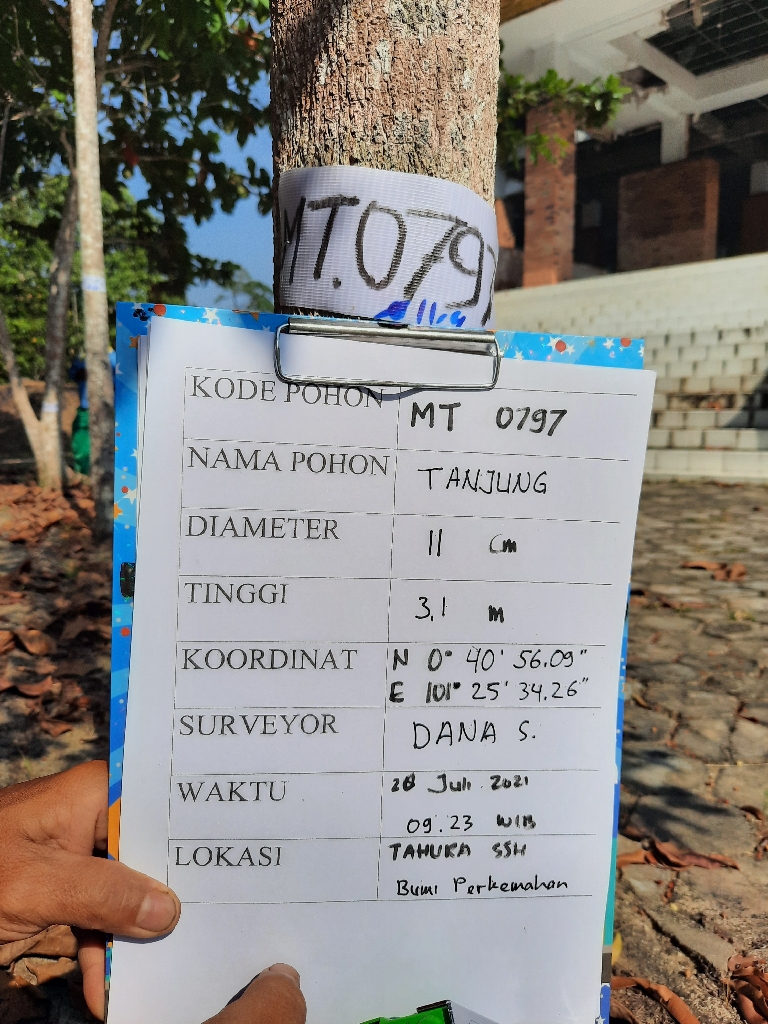 MT.0797
KODE POHON MT 0797
NAMA POHON TANJUNG
DIAMETER 11 cm
TINGGI 3,1 m
KOORDINAT N 0° 40' 56.09"
E 101° 25' 34.26"
SURVEYOR DANA S.
WAKTU 28 Juli 2021
09.23 WIB
LOKASI TAHURA SSH
Bumi Perkemahan